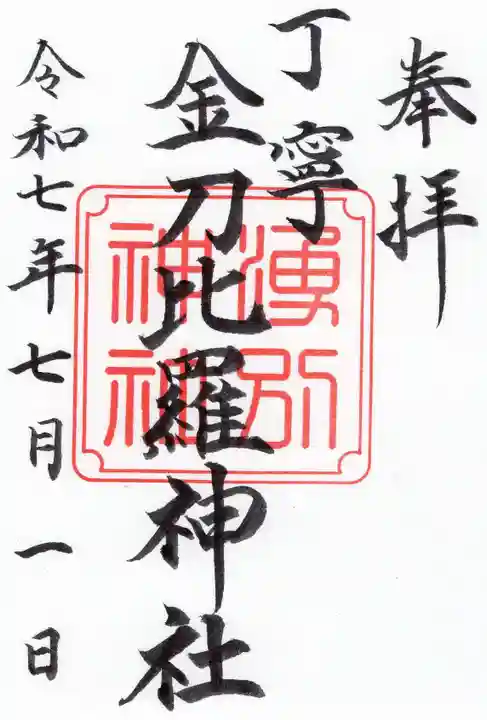 奉拝
丁寧
金刀比羅神社
湧別
神社
令和七年七月一日